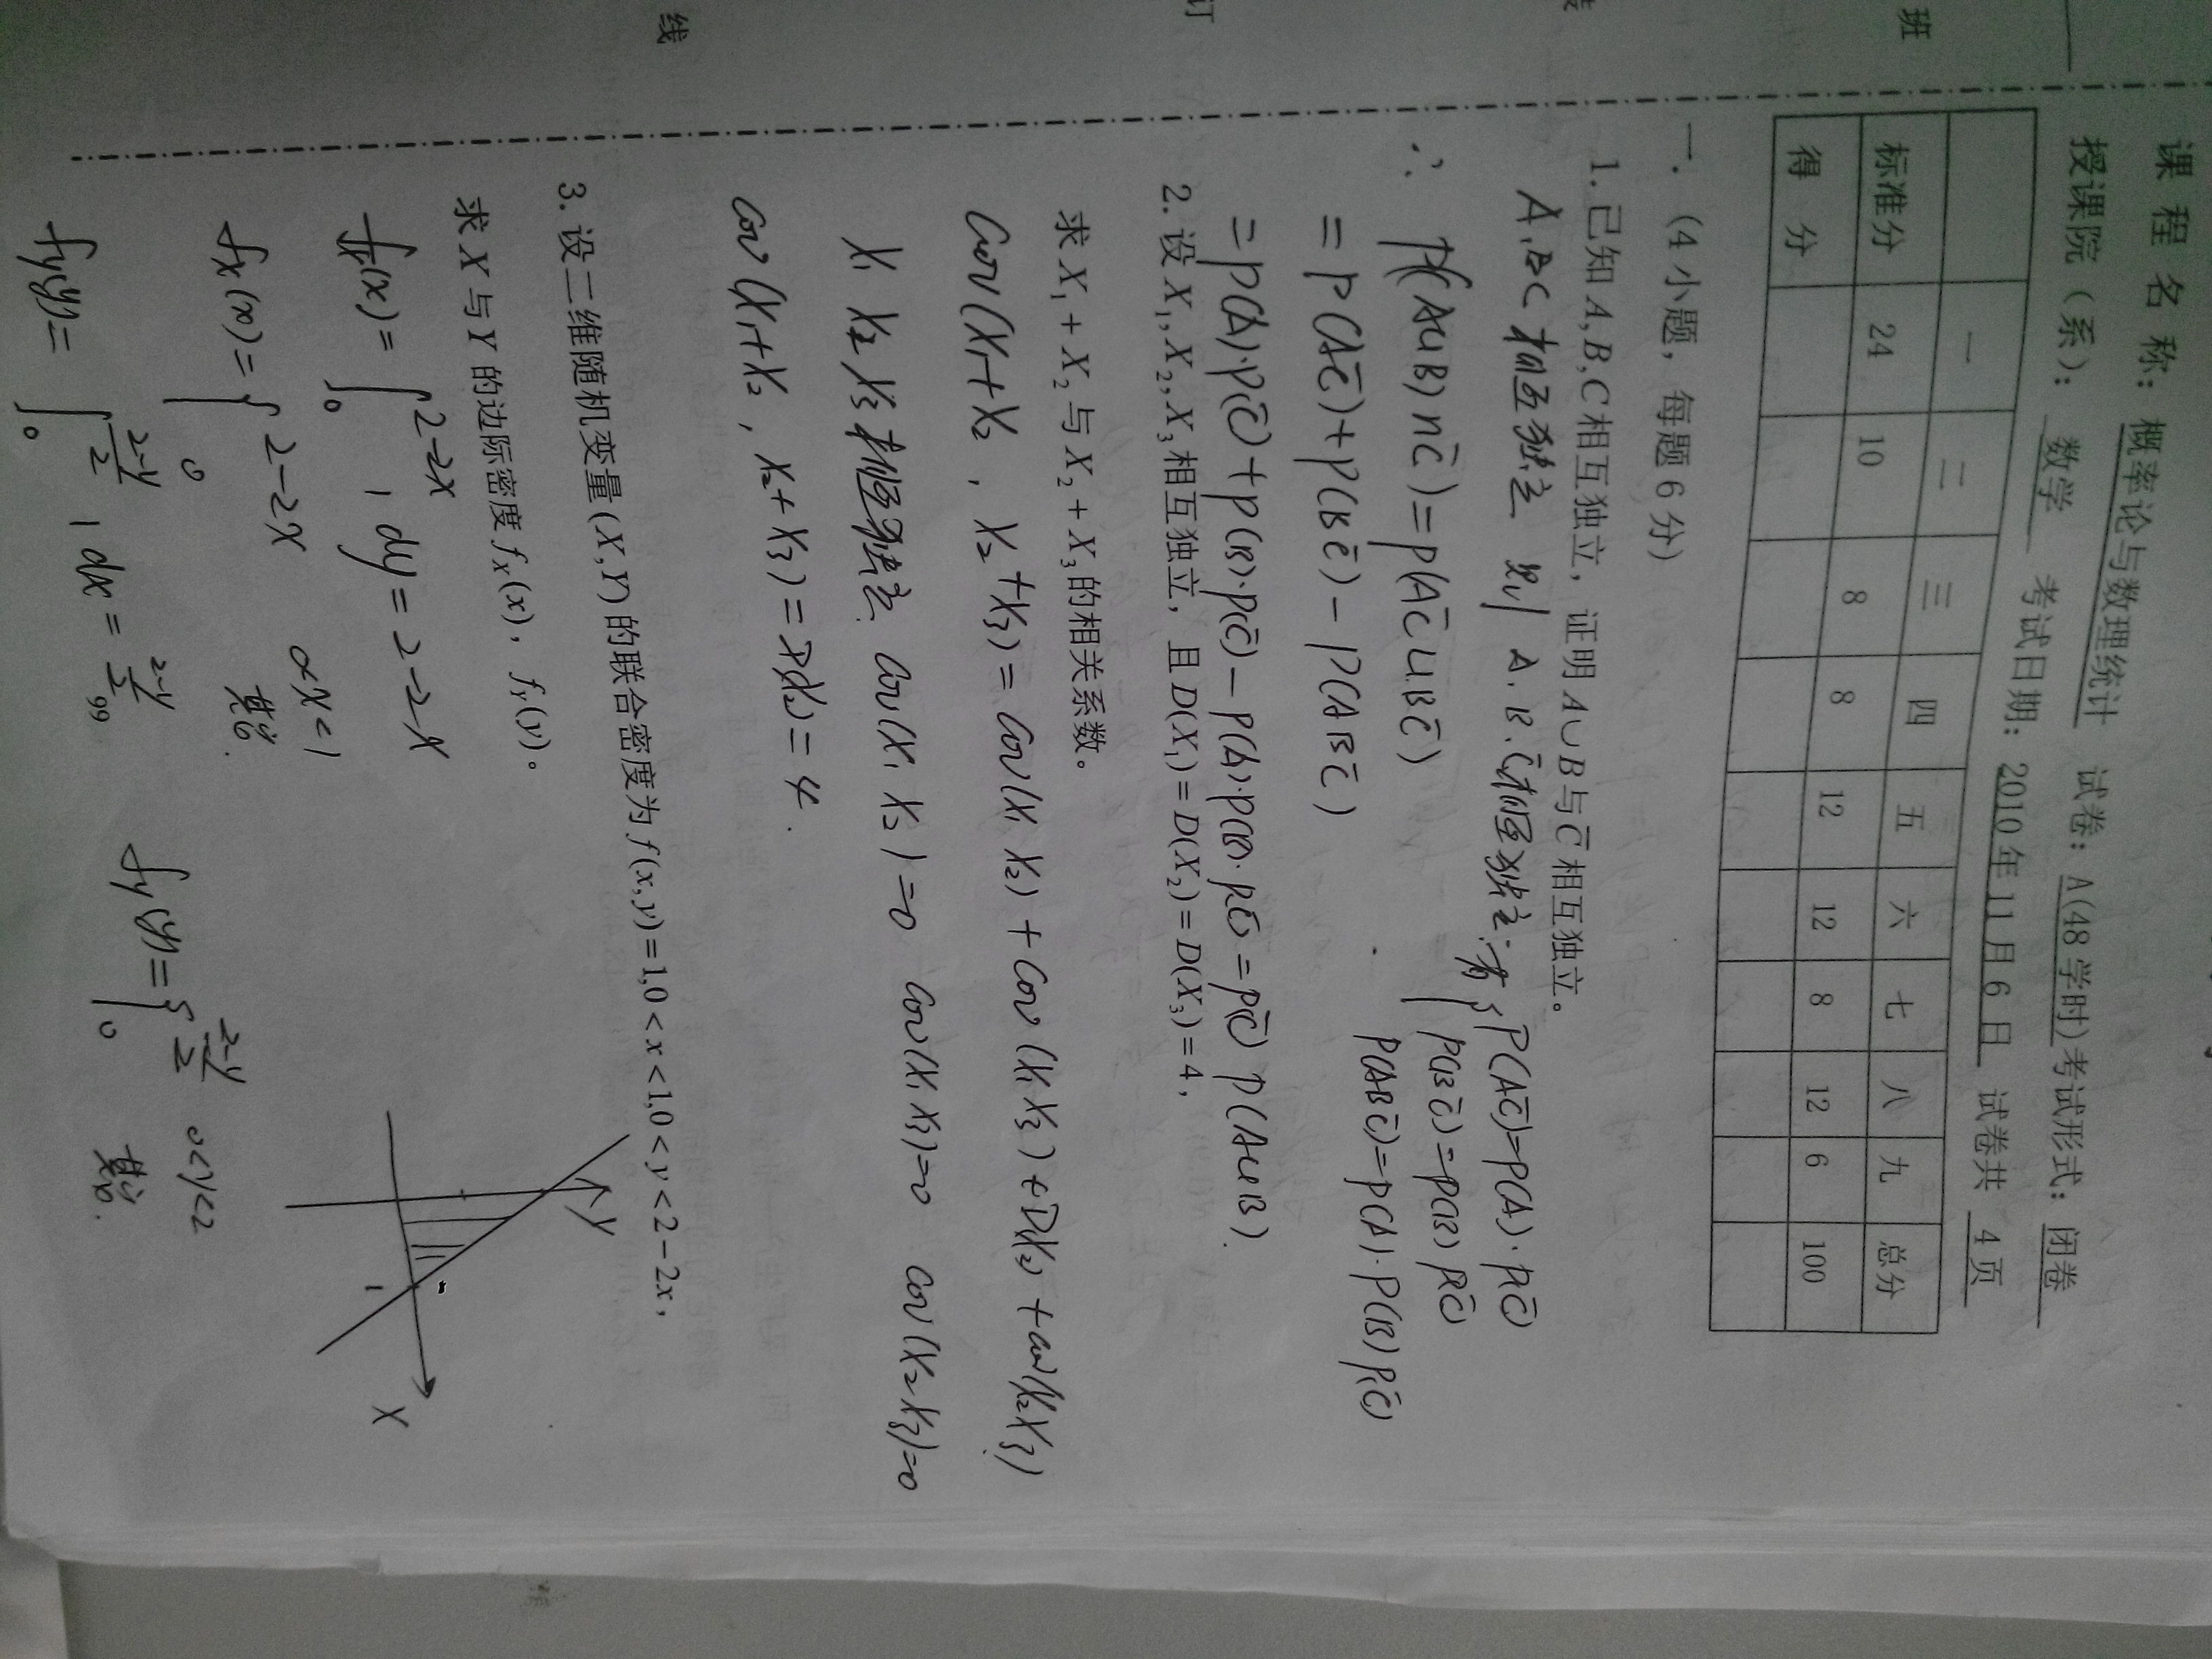 班
订
线
课 程 名 称：概率论与数理统计 试卷：A(48学时)考试形式：闭卷
授课院（系）：数学 考试日期：2010年11月6日 试卷共 4页
一 二 三 四 五 六 七 八 九 总分
标准分 24 10 8 8 12 12 8 12 6 100
得 分
一.（4小题，每题6分）
1.已知A,B,C相互独立，证明A∪B与C̄相互独立。
A,B C 相互独立 则 A.B.C̄相互独立.有{P(AC̄)=P(A)·P(C̄)
P(BC̄)=P(B)P(C̄)
P(ABC̄)=P(A)·P(B)P(C̄)
∴ P((A∪B)∩C̄)=P(AC̄∪BC̄)
=P(AC̄)+P(BC̄)-P(ABC̄)
=P(A)·P(C̄)+P(B)·P(C̄)-P(A)·P(B)·P(C̄)=P(C̄) P(A∪B).
2.设X₁,X₂,X₃相互独立，且D(X₁)=D(X₂)=D(X₃)=4，
求X₁+X₂与X₂+X₃的相关系数。
Cov(X₁+X₂, X₂+X₃)=Cov(X₁ X₂)+Cov(X₁ X₃)+D(X₂)+Cov(X₂X₃)
X₁ X₂ X₃相互独立. Cov(X₁ X₂)=0 Cov(X₁ X₃)=0 Cov(X₂X₃)=0
Cov(X₁+X₂, X₂+X₃)=D(X₂)=4.
3.设二维随机变量(X,Y)的联合密度为f(x,y)=1,0<x<1,0<y<2-2x，
求X与Y的边际密度f_X(x)，f_Y(y)。
f_X(x)=∫₀^(2-2x) 1 dy=2-2x
f_X(x)={2-2x 0<x<1
0 其它.
f_Y(y)=∫₀^((2-y)/2) 1 dx=(2-y)/2
f_Y(y)={(2-y)/2 0<y<2
0 其它.
Y
1
X